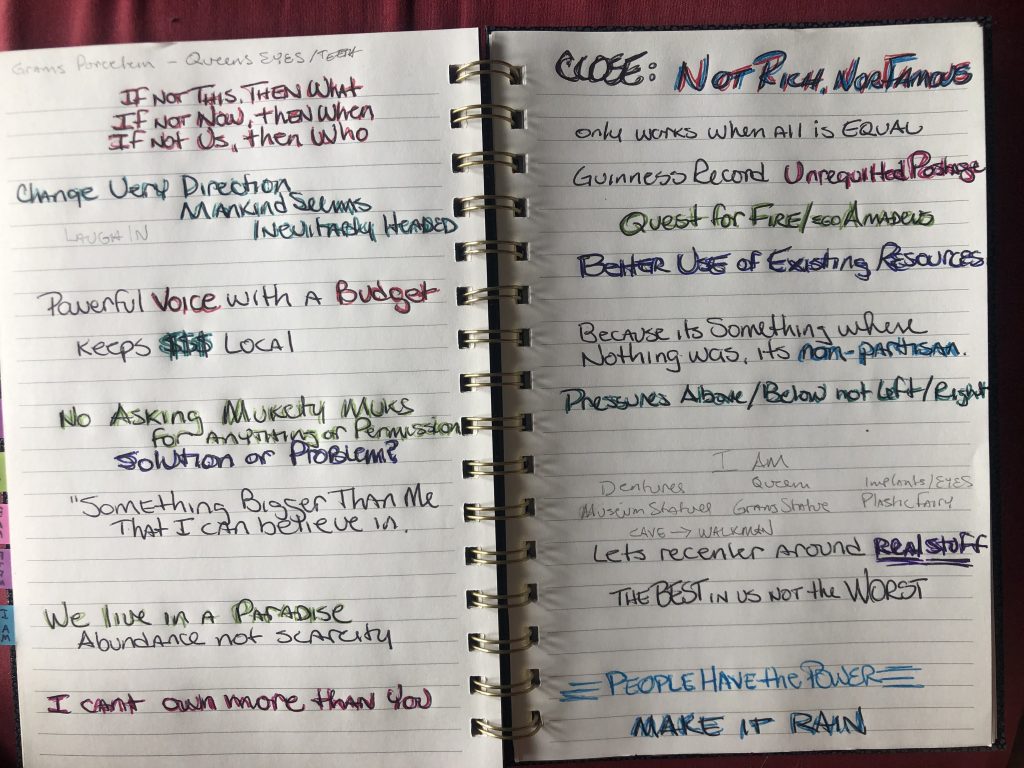 Grams Porcelem - Queens Eyes/Teeth
If Not This, Then What
If Not Now, then When
If Not Us, then Who
Change Very Direction
Mankind Seems
Inevitably Headed
Laugh In
Powerful Voice with a Budget
Keeps $$$ Local
No Asking Mukcity Muks
for anything or Permission
Solution or Problem?
"Something Bigger Than Me
That I can believe in.
We live in a Paradise
Abundance not scarcity
I cant own more than You
Close: Not Rich, Nor Famous
only works when all is Equal
Guinness Record Unrequitted Postage
Quest for Fire/ego/Amadeus
Better Use of Existing Resources
Because its Something where
Nothing was, its non-partisan.
Pressures Above/Below not Left/Right
I Am
Dentures Queen Implants/Eyes
Museum Statues Grams Statue Plastic Fairy
Cave → Walkman
Lets recenter around Real Stuff
The Best in us not the Worst
People Have the Power
Make it Rain
I AM